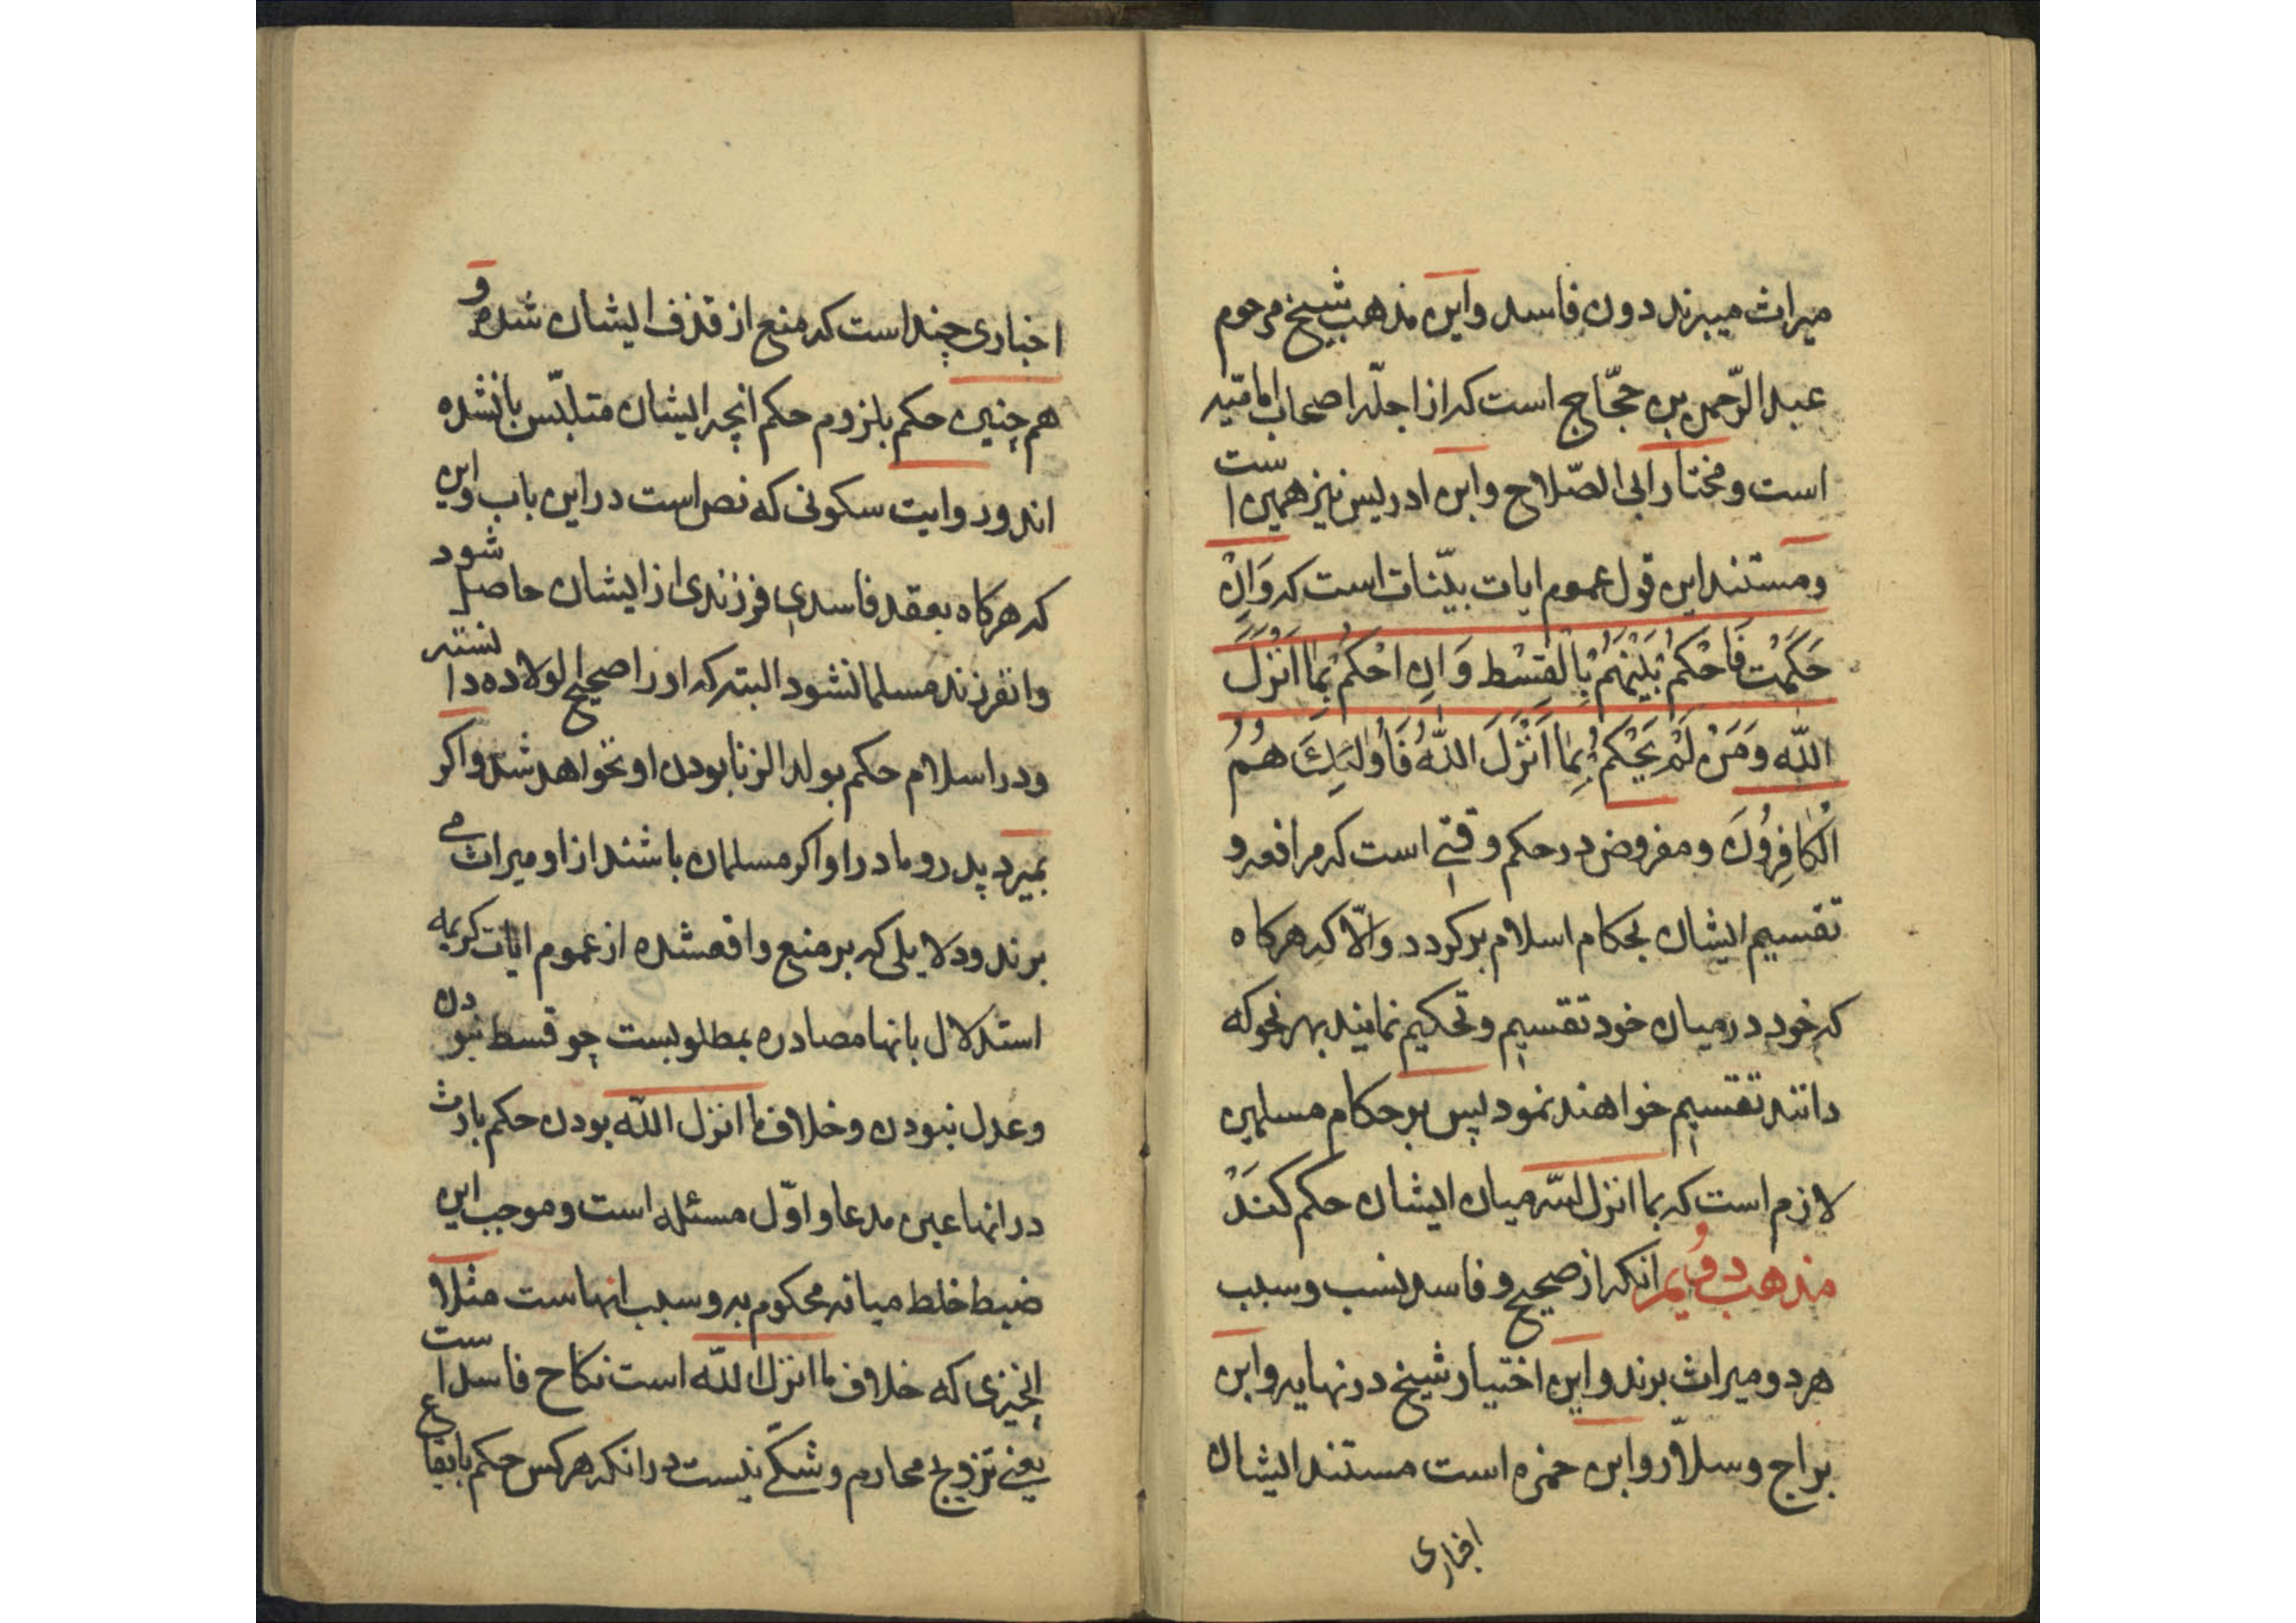 میراث میبرند دون فاسد و این مذهب شیخ مرحوم
عبد الرّحمن بن حجّاج است که از اجلّه اصحاب امامیّه
است و مختار ابی الصّلاح و ابن ادریس نیز همین است
و مستند این قول عموم ایات بیّنات است که وَاِنْ
حَکَمْتَ فَاحْکُمْ بَیْنَهُمْ بِالْقِسْط وَ اِن احْکُمْ بِمٰا اَنْزَلَ
اللّٰه وَمَنْ لَمْ یَحْکُمْ بِمٰا اَنْزَلَ اللّٰهُ فَاُولٰئِكَ هُمُ
الْکٰافِرُونَ و مفروض در حکم وقتی است که مرافعه و
تقسیم ایشان بحکام اسلام برکردد و الّا که هرکاه
که خود در میان خود تقسیم و تحکیم نمایند بهر نحو که
دانند تقسیم خواهند نمود پس بر حکام مسلمین
لازم است که بما انزل اللّه میان ایشان حکم کنَنْد
مذهب دوُیم انکه از صحیح و فاسد نسب و سبب
هر دو میراث برند و این اختیار شیخ در نهایه و ابن
براج و سلّار و ابن حمزه است مستند ایشان
اخباری
اخباری چند است که منع از قذف ایشان شده و
هم چنین حکم بلزوم حکم انچه ایشان متلبّس بانشده
اند و روایت سکونی که نص است در این باب و این
که هرکاه بعقد فاسدی فرزندی از ایشان حاصل شود
و انفرزند مسلمانشود البته که او را صحیح الولاده دانسته
و در اسلام حکم بولد الزنا بودن او نخواهد شد و اکر
بمیرد پدر و مادر او اکر مسلمان باشند از او میراث می
برند و دلایلی که بر منع واقعشده از عموم ایات کریمه
استدلال بانها مصادره بمطلوبست چو قسط نبودن
و عدل نبودن و خلاف ما انزل اللّه بودن حکم بارث
در انها عین مدعا و اوّل مسئله است و موجب این
ضبط خلط میانه محکوم به و سبب انهاست مثلا
انچیزی که خلاف ما انزل اللّه است نکاح فاسد است
یعنی تزویج محارم و شکّی نیست در انکه هرکس حکم بایقاع